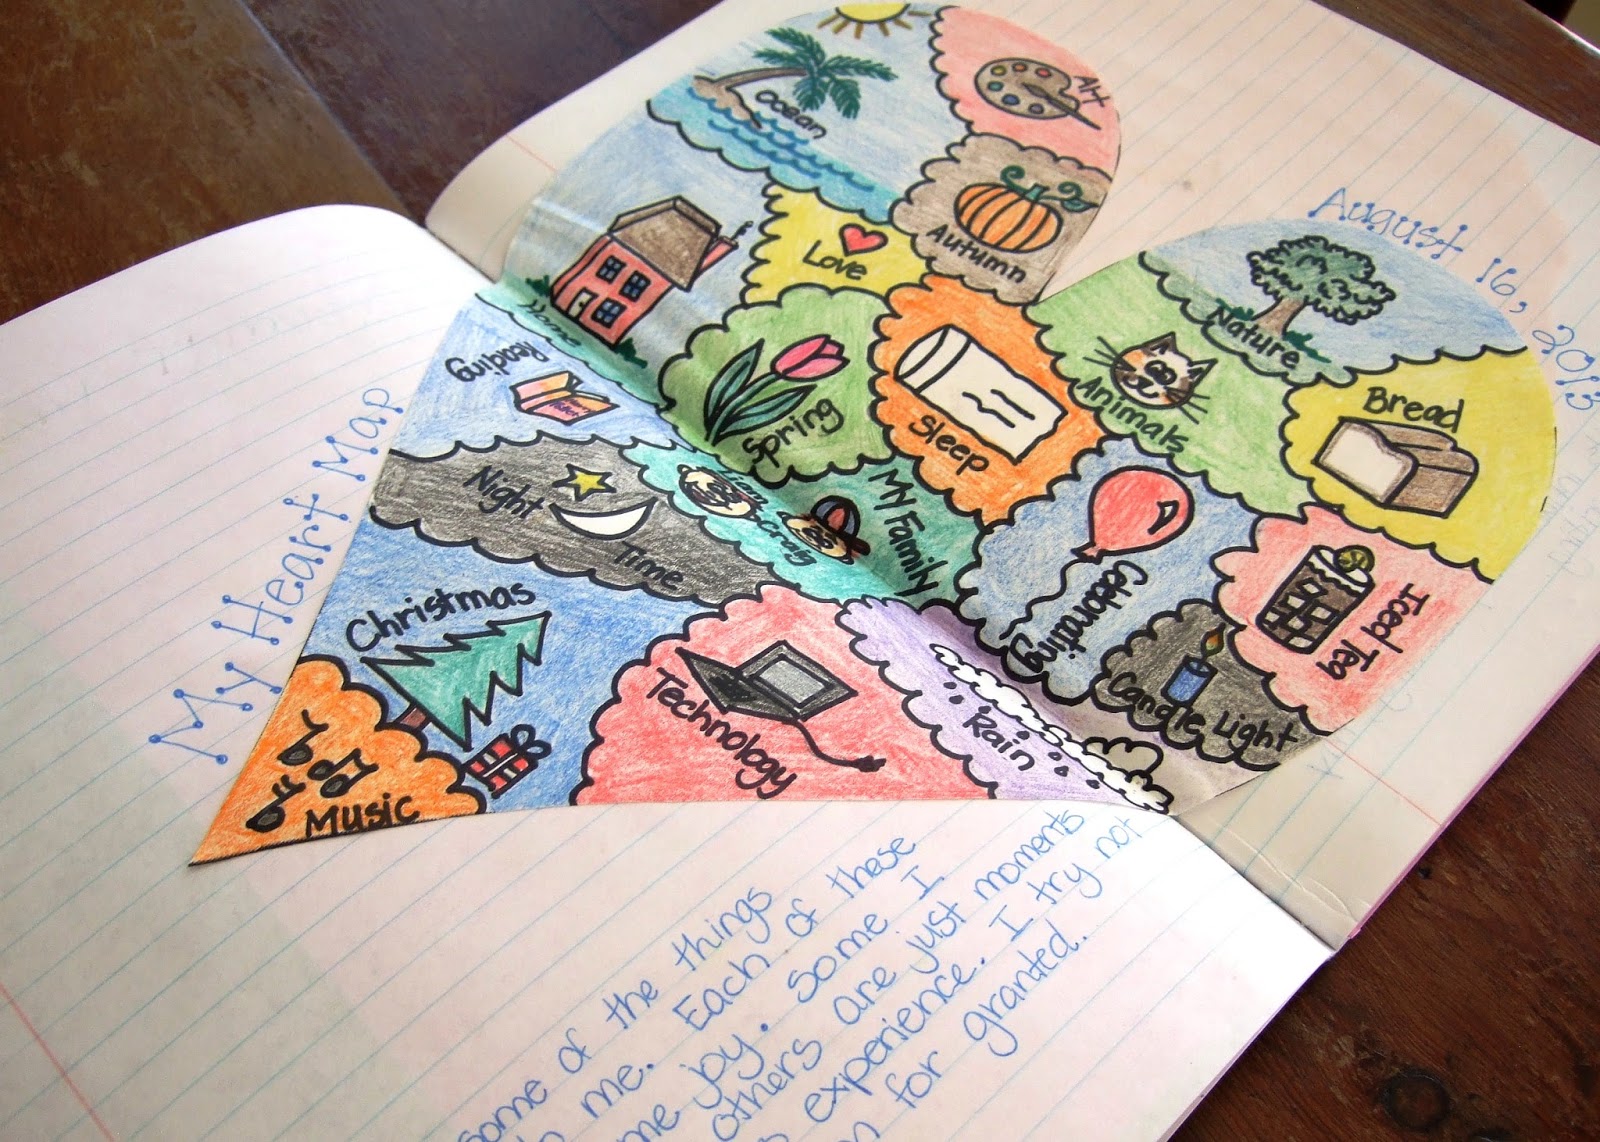 My Heart Map
August 16, 2013
Art
Ocean
Autumn
Love
Home
Nature
Animals
Bread
Reading
Spring
Sleep
Night
Time
Craig
My Family
Celebrating
Iced Tea
Candle Light
Christmas
Technology
Rain
Music
some of the things
me. Each of these
me joy. Some I
others are just moments
experience. I try not
for granted.